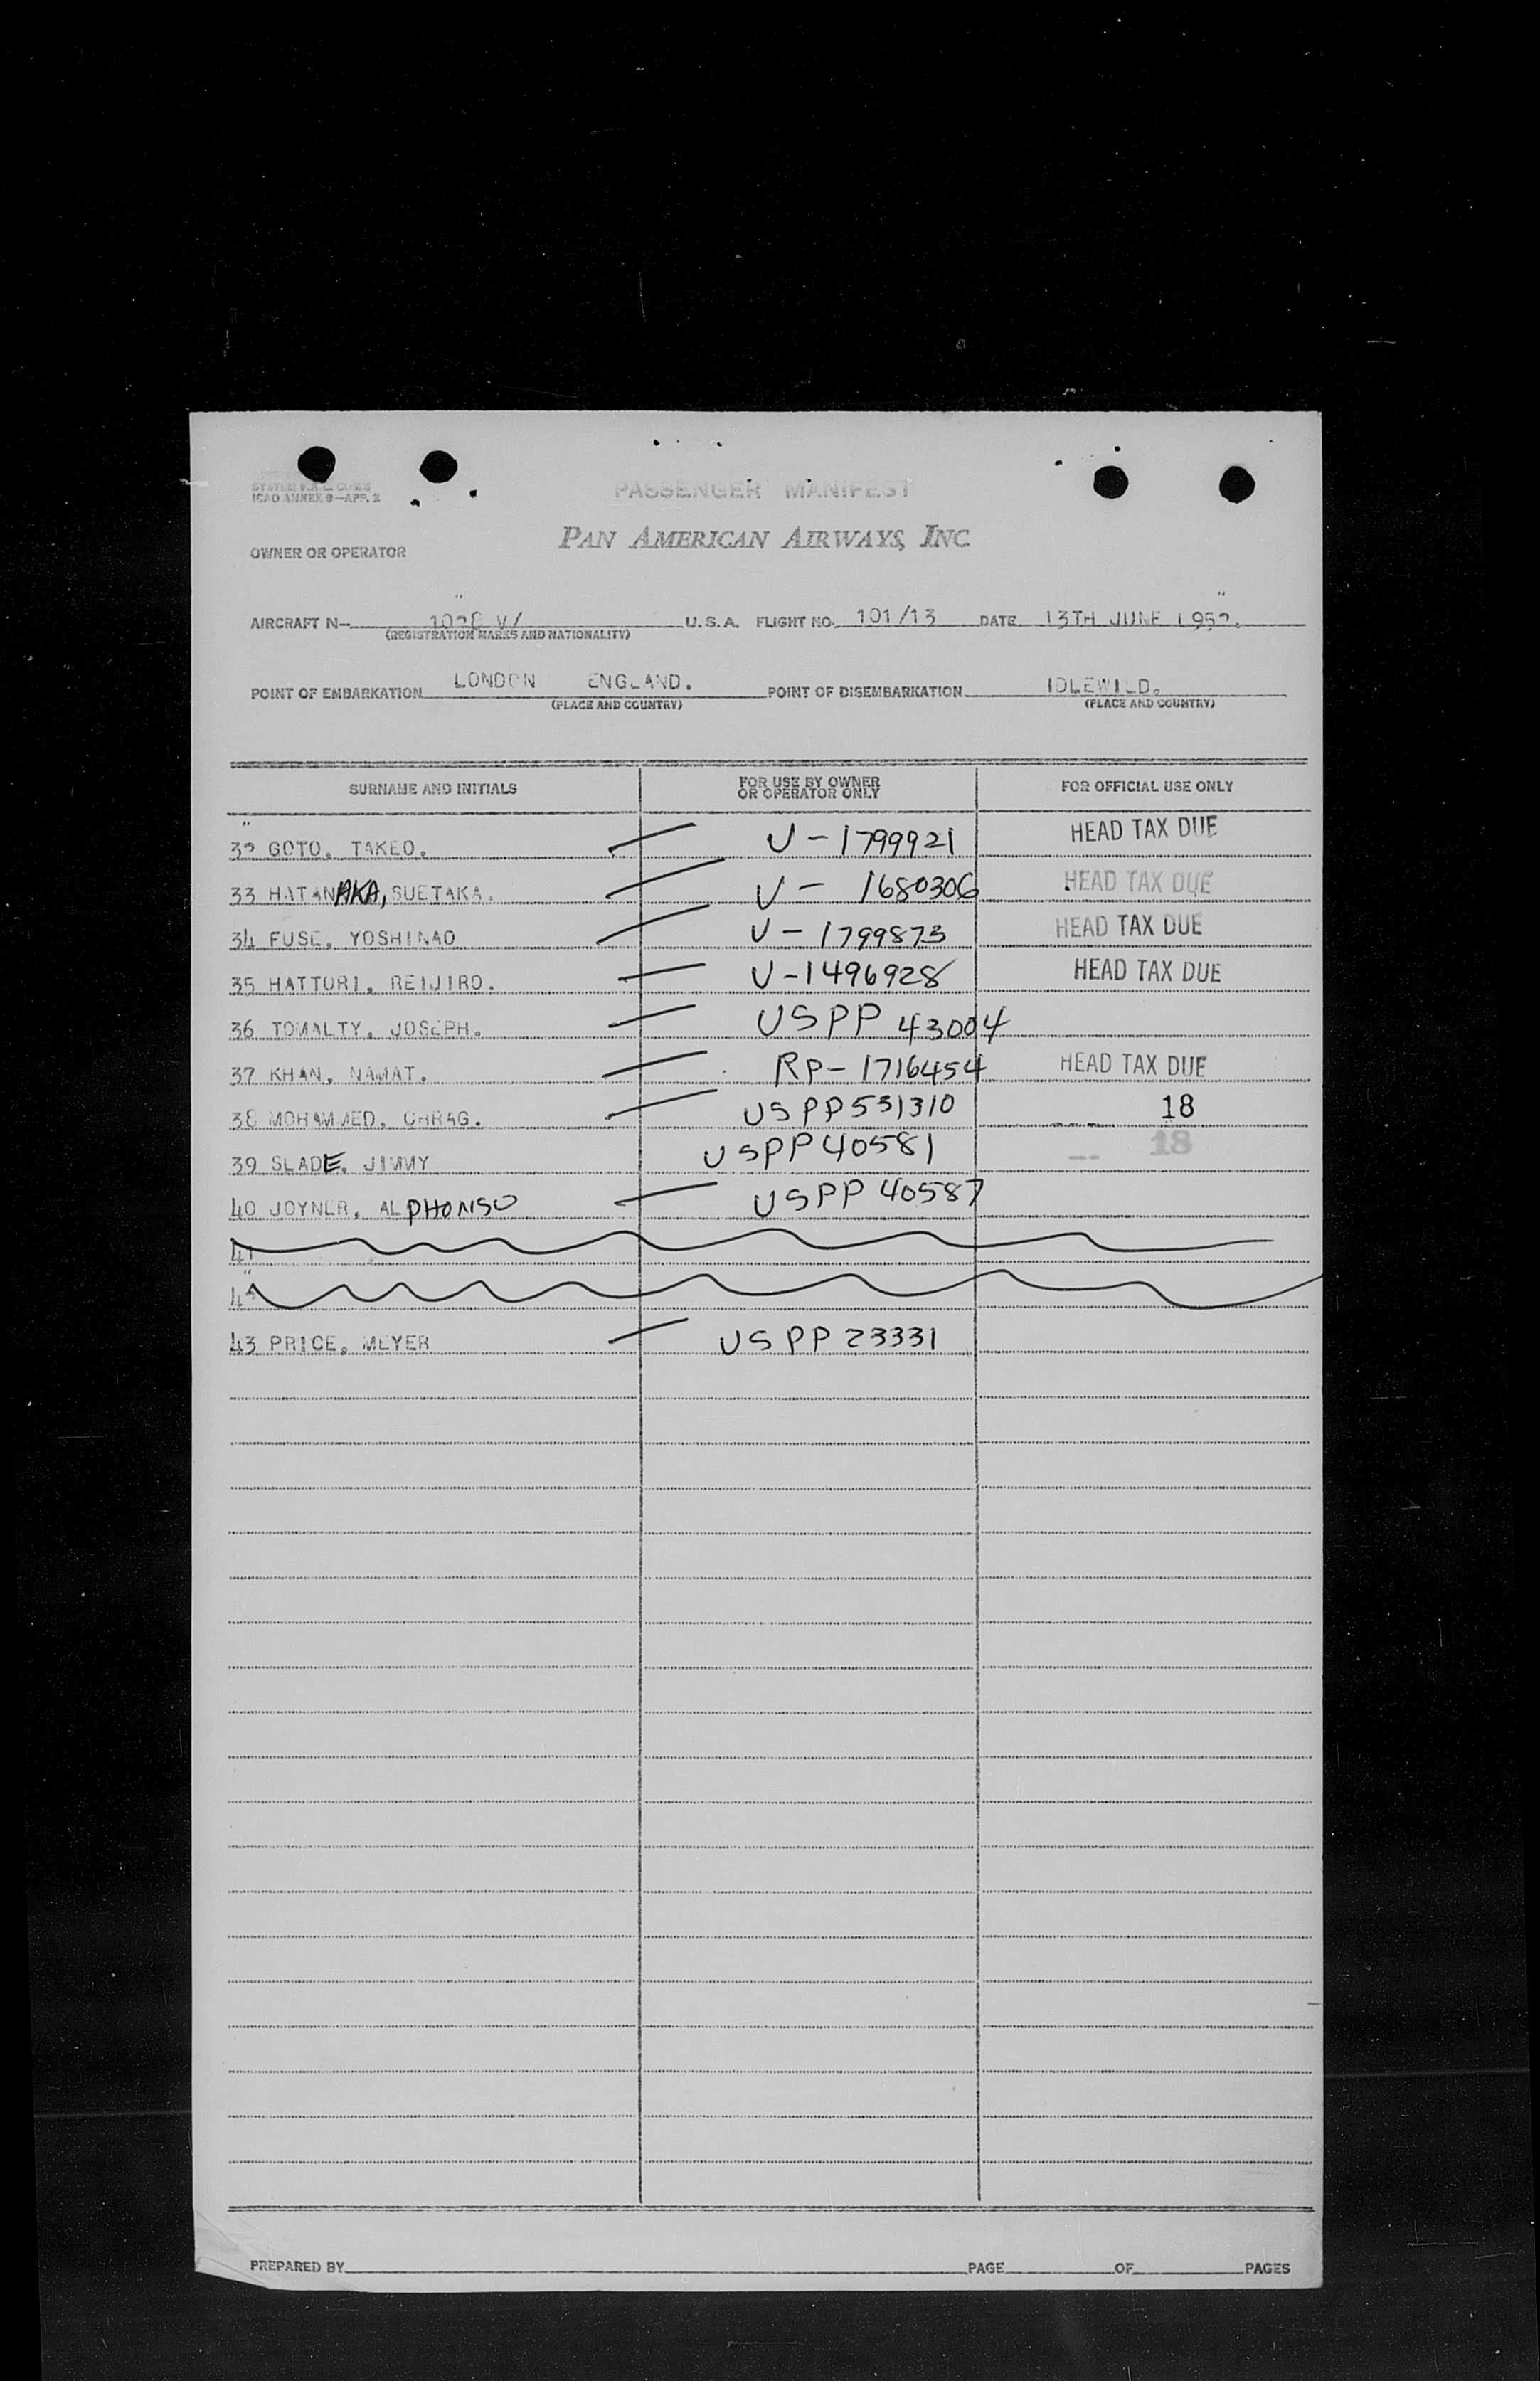 ICAO ANNEX 9—APP. 2
PASSENGER MANIFEST
PAN AMERICAN AIRWAYS, INC.
OWNER OR OPERATOR
AIRCRAFT N— 1028 V/ U.S.A. FLIGHT NO. 101/13 DATE 13TH JUNE 1952.
(REGISTRATION MARKS AND NATIONALITY)
POINT OF EMBARKATION LONDON ENGLAND. POINT OF DISEMBARKATION IDLEWILD.
(PLACE AND COUNTRY) (PLACE AND COUNTRY)
SURNAME AND INITIALS FOR USE BY OWNER OR OPERATOR ONLY FOR OFFICIAL USE ONLY
32 GOTO, TAKEO. V-1799921 HEAD TAX DUE
33 HATANAKA, SUETAKA. V- 1680306 HEAD TAX DUE
34 FUSE, YOSHINAO V-1799873 HEAD TAX DUE
35 HATTORI, REIJIRO. V-1496928 HEAD TAX DUE
36 TOMALTY, JOSEPH. USPP 43004
37 KHAN, NAMAT. RP-1716454 HEAD TAX DUE
38 MOHAMMED, CHRAG. USPP531310 18
39 SLADE, JIMMY USPP40581 18
40 JOYNER, ALPHONSO USPP 40587
41
42
43 PRICE, MEYER USPP 23331
PREPARED BY PAGE OF PAGES